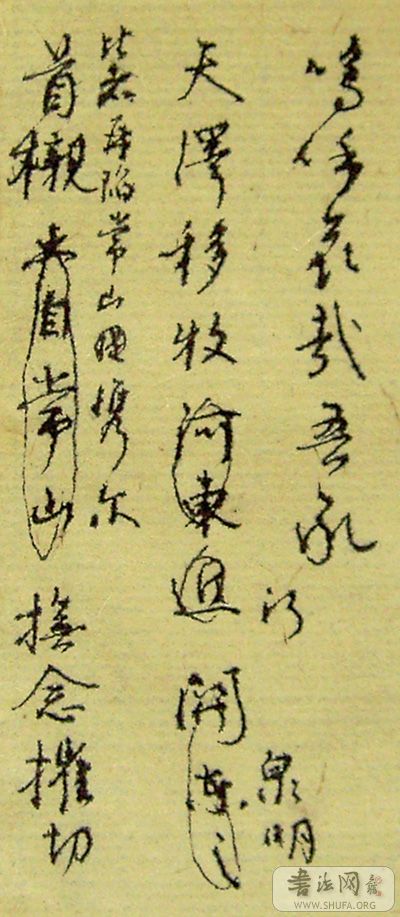 嗚呼哀哉吾承
天澤移牧河東近
河關
泉明
比者再陷常山攜尔
首櫬亦自常山撫念摧切
書法网
WWW.SHUFA.ORG